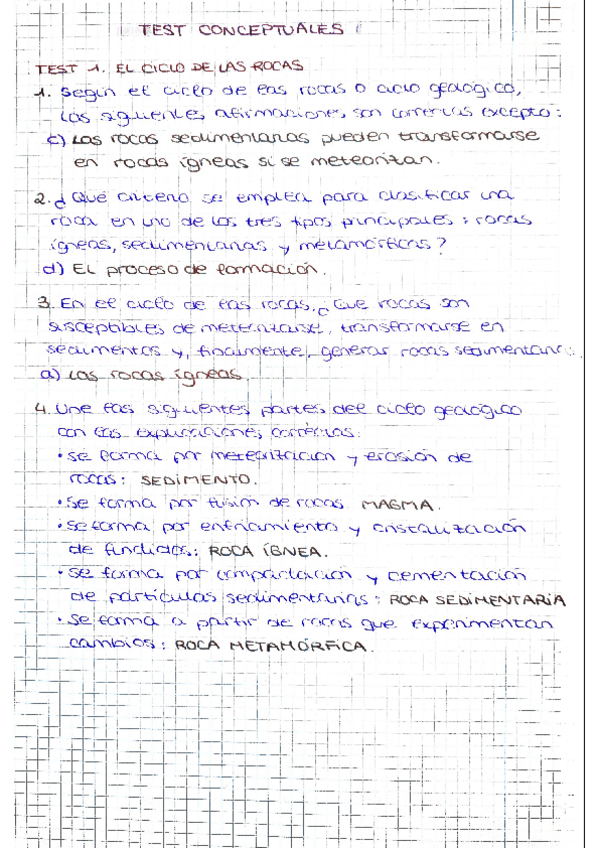 TEST CONCEPTUALES
TEST 1. EL CICLO DE LAS ROCAS
1. Según el ciclo de las rocas o ciclo geológico,
las siguientes afirmaciones son correctas excepto:
c) Las rocas sedimentarias pueden transformarse
en rocas ígneas si se meteorizan.
2. ¿Qué criterio se emplea para clasificar una
roca en uno de los tres tipos principales: rocas
ígneas, sedimentarias y metamórficas?
d) El proceso de formación.
3. En el ciclo de las rocas, ¿Que rocas son
susceptibles de meteorizarse, transformarse en
sedimentos y, finalmente, generar rocas sedimentarias
a) Las rocas ígneas.
4. Une las siguientes partes del ciclo geológico
con las explicaciones correctas:
• Se forma por meteorización y erosión de
rocas: SEDIMENTO.
• Se forma por fusión de rocas MAGMA.
• Se forma por enfriamiento y cristalización
de fundidos: ROCA ÍGNEA.
• Se forma por compactación y cementación
de partículas sedimentarias: ROCA SEDIMENTARIA
• Se forma a partir de rocas que experimentan
cambios: ROCA METAMÓRFICA.